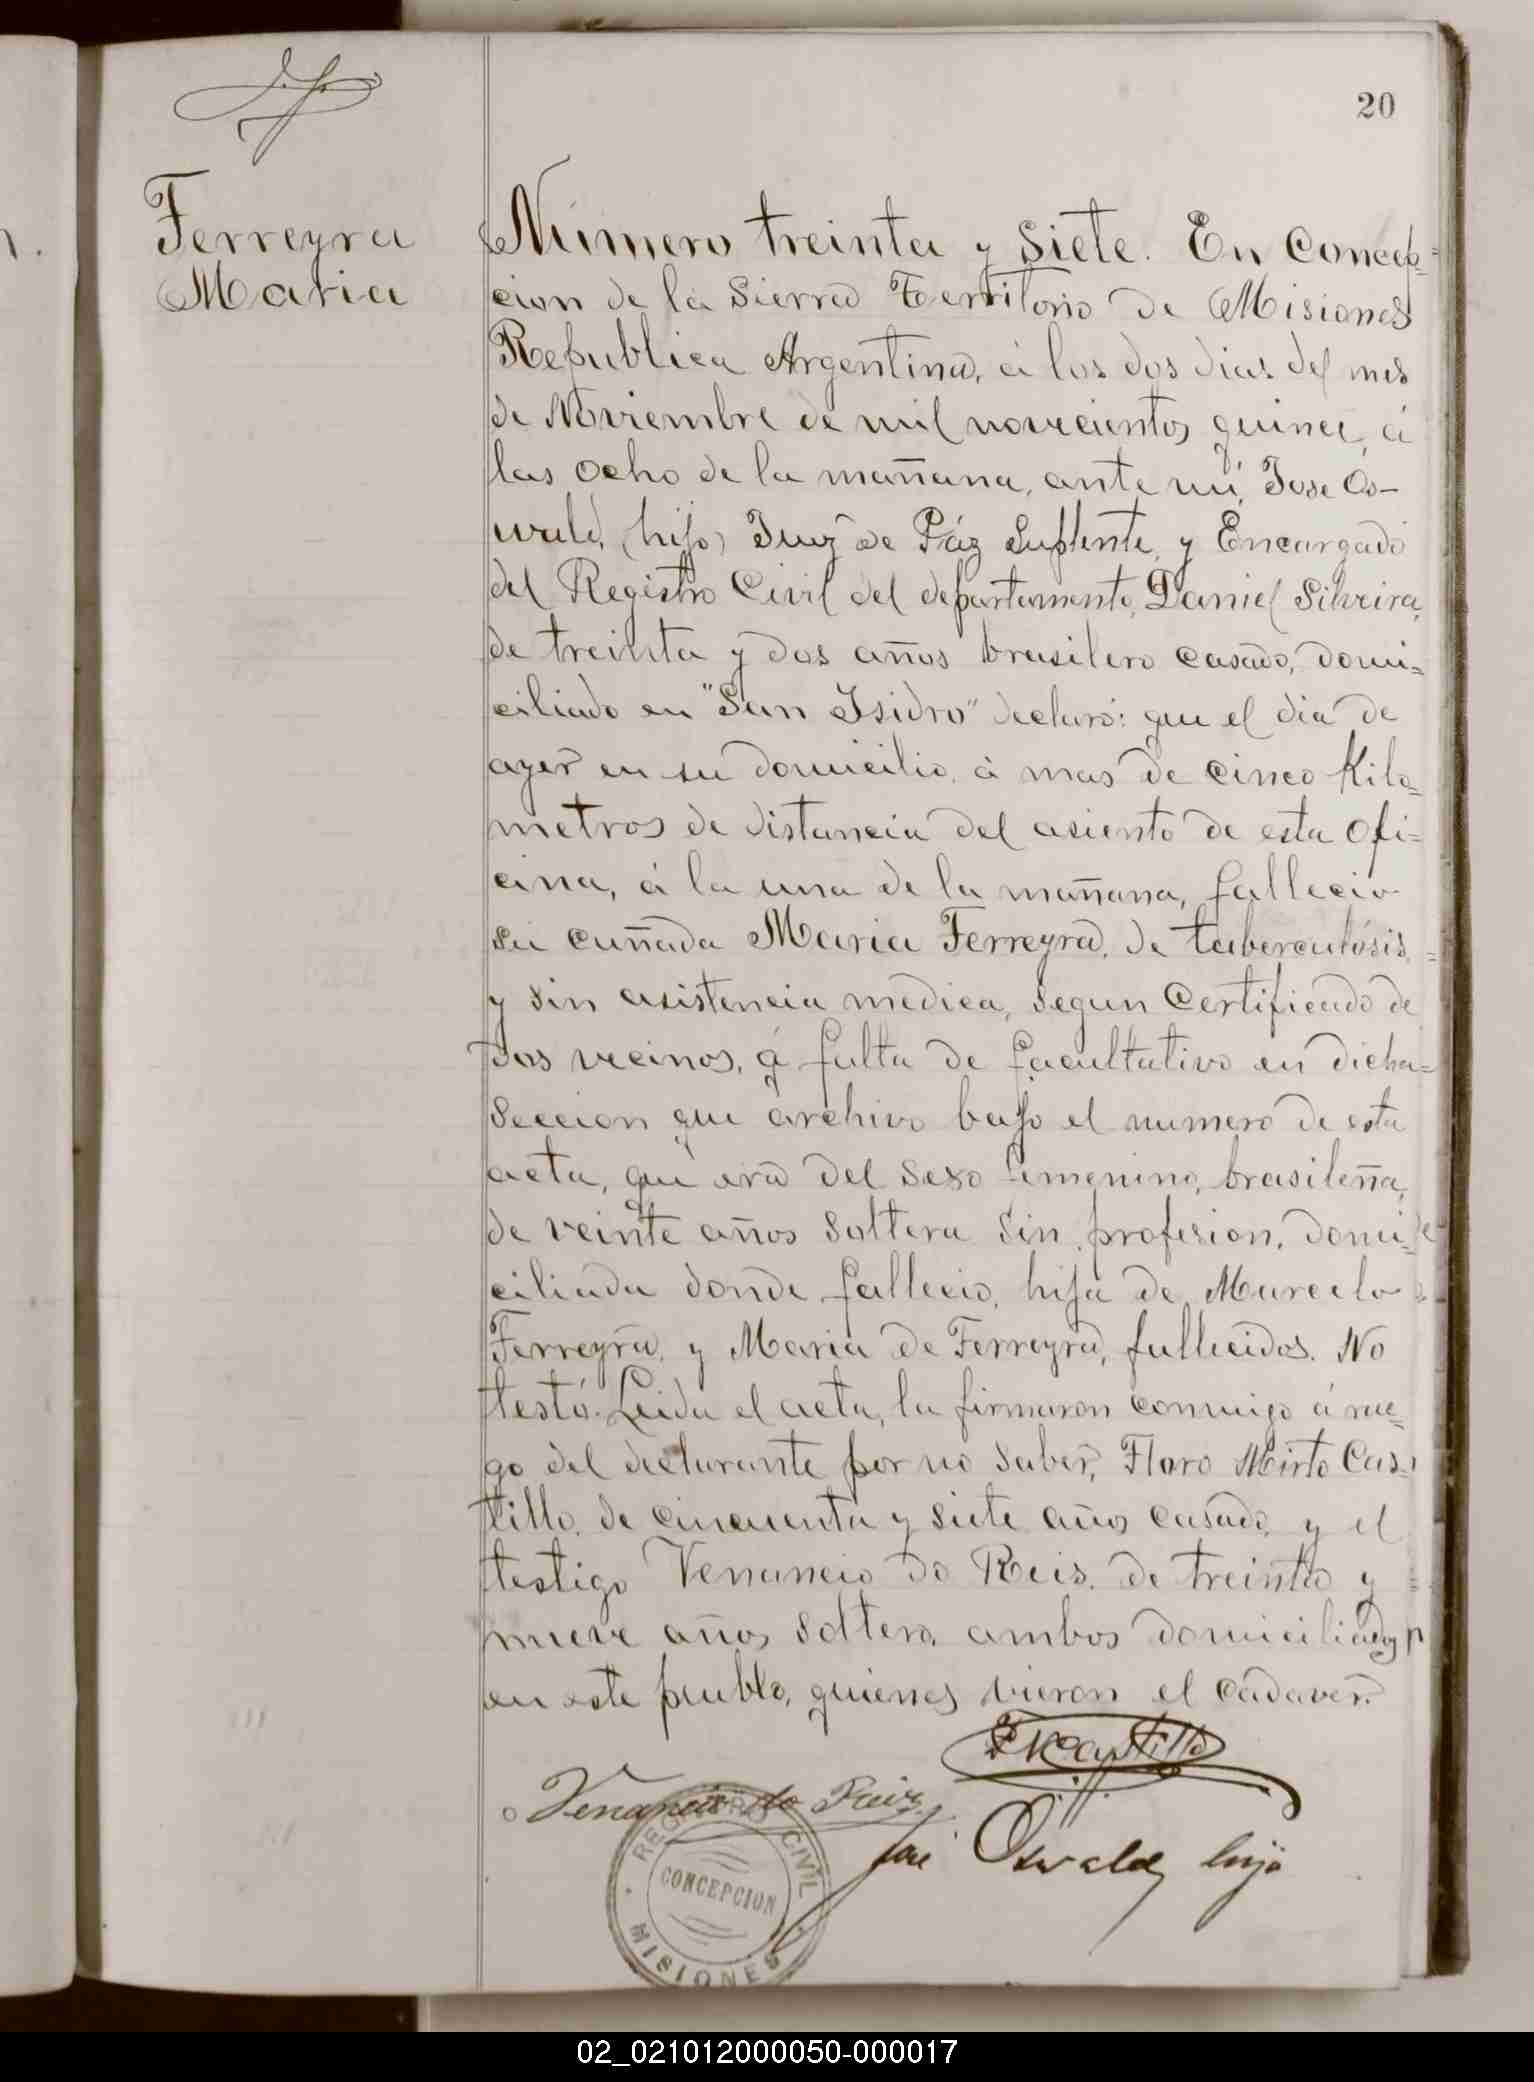 20
Ferreyra
Maria
Número treinta y siete. En Concep-
cion de la Sierra Territorio de Misiones
Republica Argentina, á los dos dias del mes
de Noviembre de mil novecientos quince, á
las ocho de la mañana, ante mi, Jose Os-
wald, (hijo) Juez de Páz Suplente, y Encargado
del Registro Civil del departamento, Daniel Silveira,
de treinta y dos años brasilero casado, domi=
ciliado en "San Isidro" declaró: que el dia de
ayer en su domicilio á mas de cinco Kilo=
metros de distancia del asiento de esta Ofi=
cina, á la una de la mañana, fallecio
su cuñada Maria Ferreyra, de tuberculósis,
y sin asistencia medica, segun Certificado de
dos vecinos, á falta de facultativo en dicha=
Seccion que archivo bajo el numero de esta
acta, que era del sexo femenino, brasileña,
de veinte años soltera sin profesion, domi=
ciliada donde fallecio, hija de Marcelo
Ferreyra, y Maria de Ferreyra, fallecidos. No
testó. Leida el acta, la firmaron conmigo á rue=
go del declarante por no saber, Floro Mirto Cas=
tillo, de cincuenta y siete años casado, y el
testigo Venancio do Reis, de treinta y
nueve años soltero, ambos domiciliados
en este pueblo, quienes vieron el cadaver.
F M Castillo
Venancio do Reis
José Oswald hijo
REGISTRO CIVIL
CONCEPCION
MISIONES
02_021012000050-000017